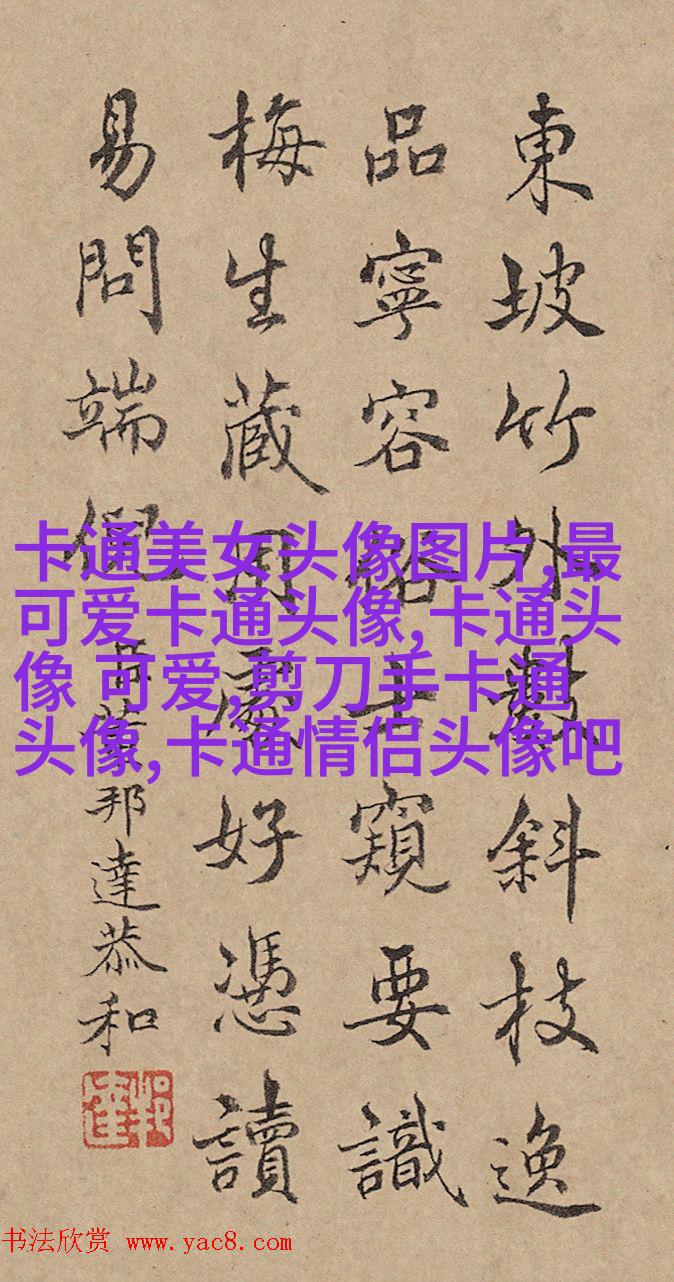 東坡竹外數斜枝逸
品寧容俗士窺要識
梅生藏用處好憑讀
易問端倪 臣董邦達恭和
卡通美女头像图片,最
可爱卡通头像,卡通头
像 可爱,剪刀手卡通
头像,卡通情侣头像吧
书法欣赏 www.yac8.com